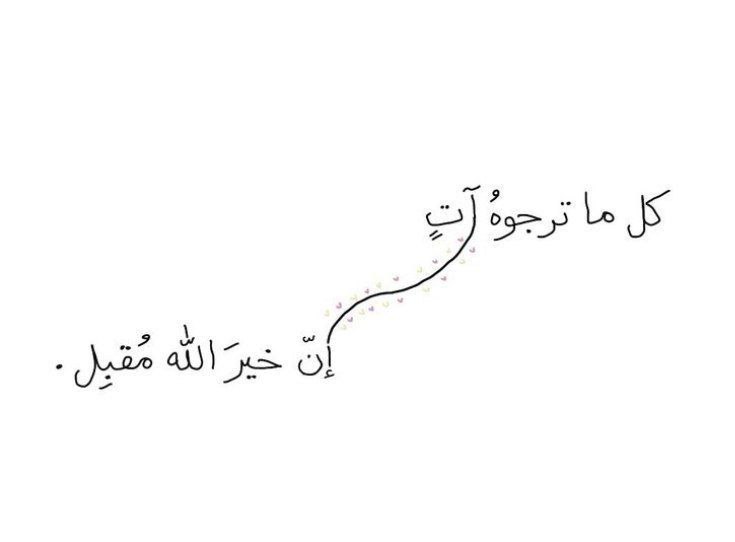 كل ما ترجوهُ آتٍ
إنّ خيرَ الله مُقبِل.